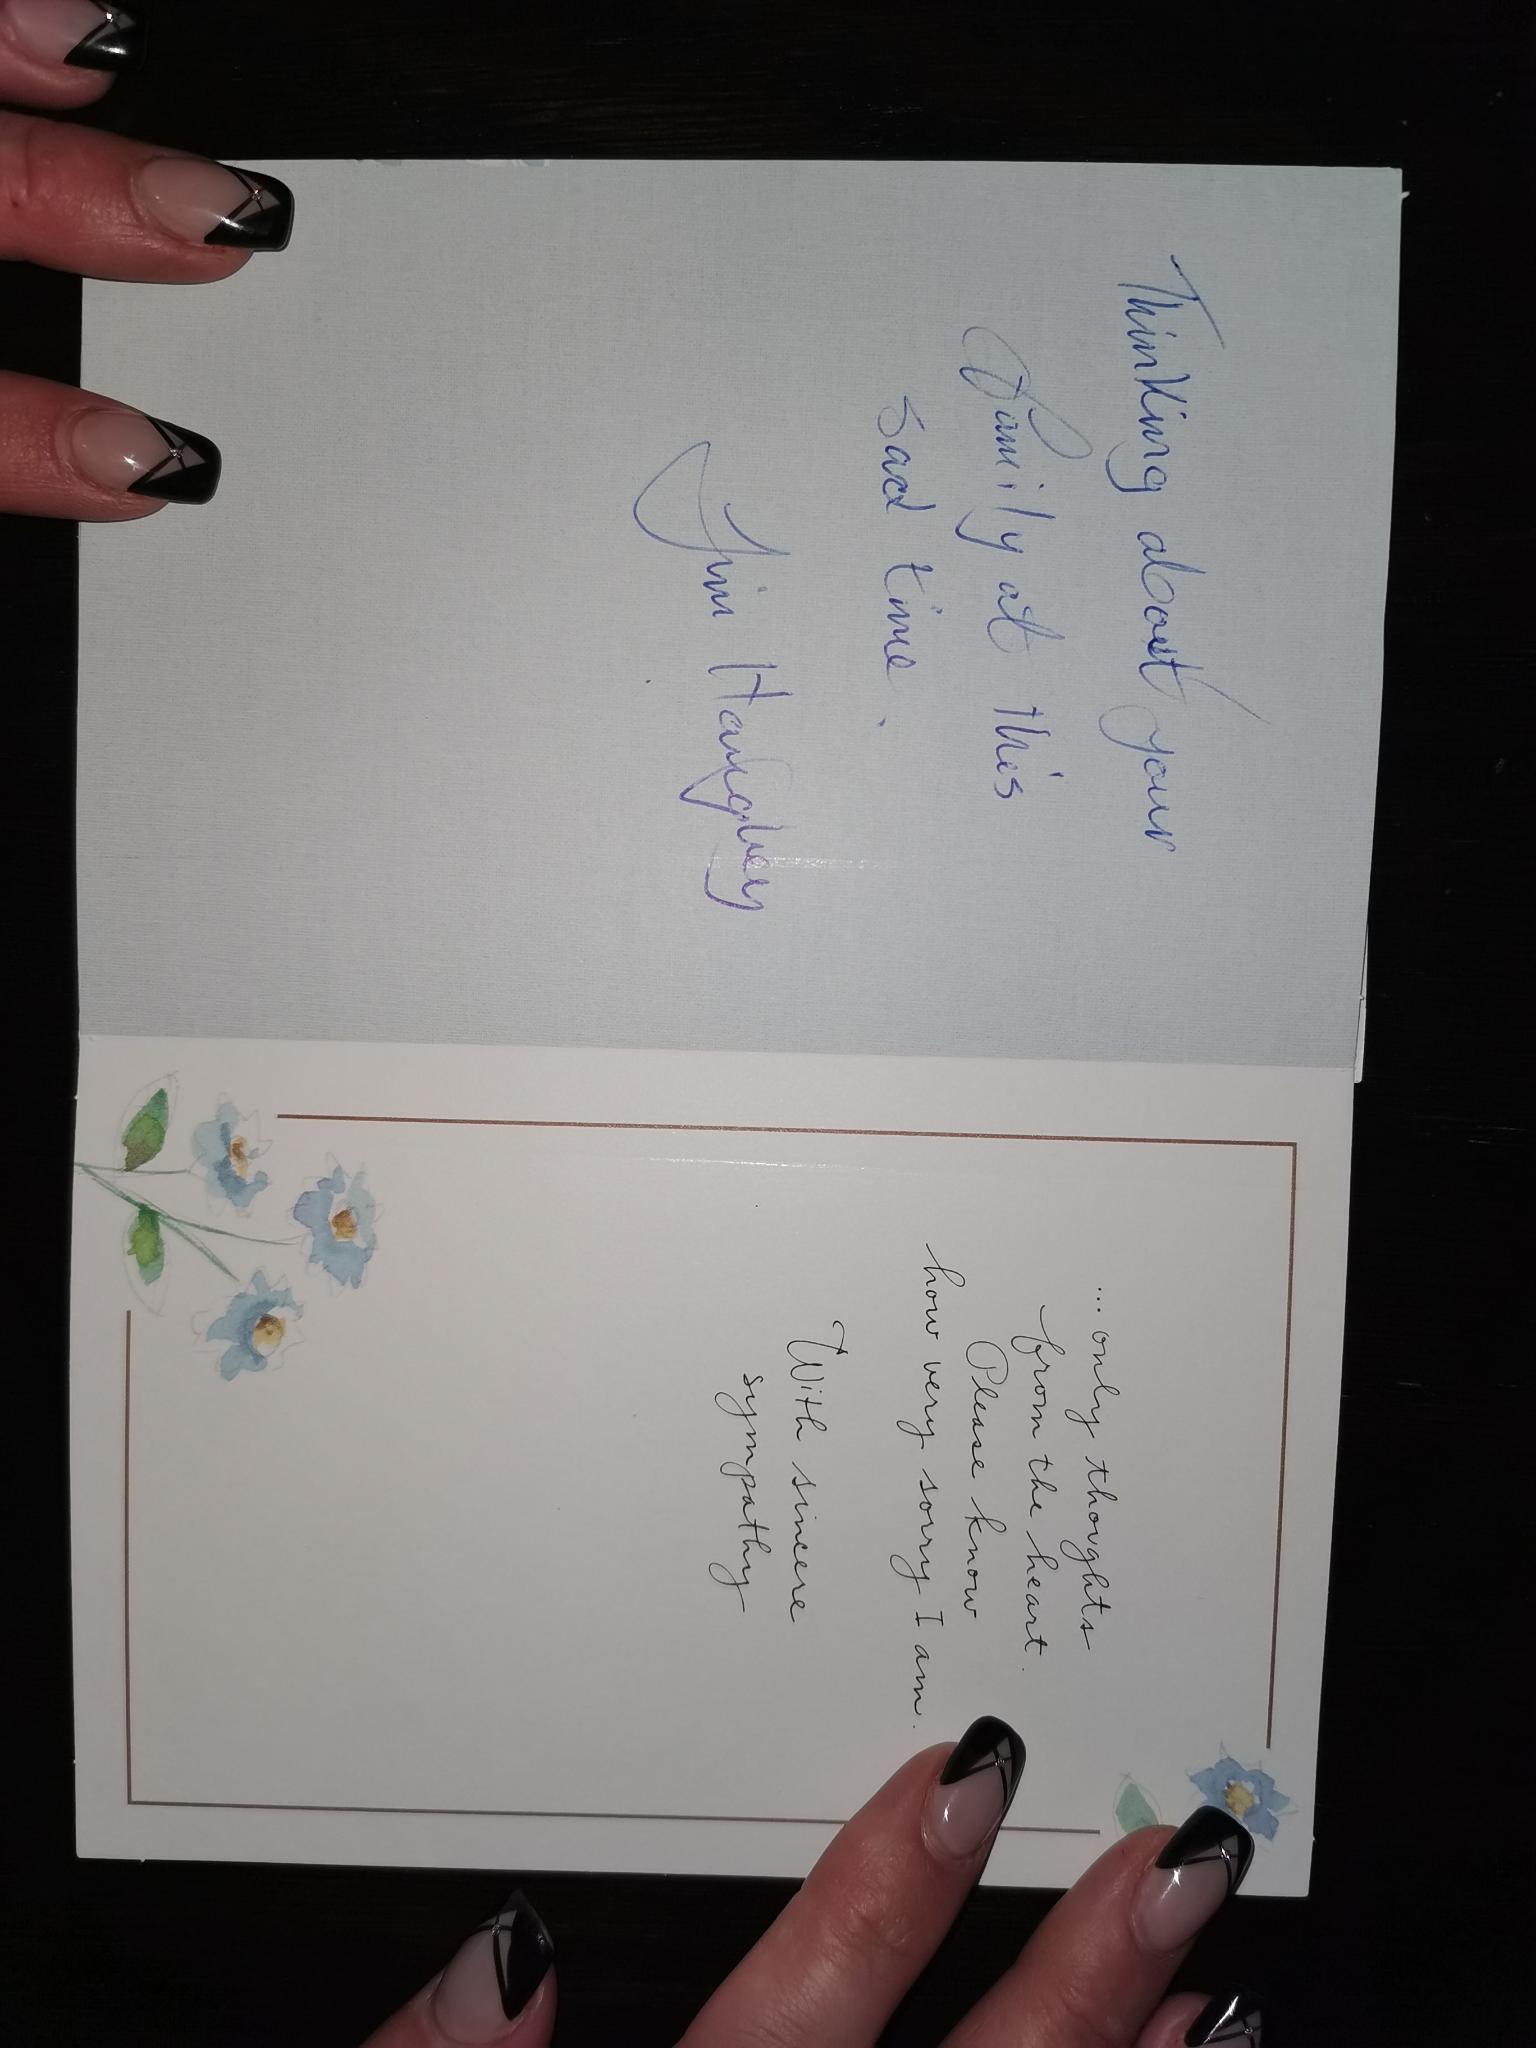 Thinking about your
Family at this
sad time.
Jim Haughey
...only thoughts
from the heart.
Please know
how very sorry I am.
With sincere
sympathy